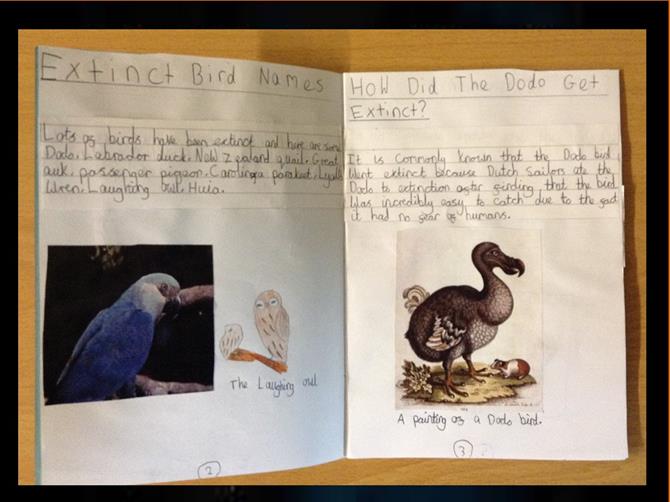 Extinct Bird Names
Lots of birds have been extinct and here are some
Dodo, Labrador duck, New Zealand quail, Great
auk, passenger pigeon, Carolinga parakeet, Lyalls
Wren, Laughing owl, Huia.
The Laughing owl
2
How Did The Dodo Get
Extinct?
It is commonly known that the Dodo bird
Went extinct because Dutch Sailors ate the
Dodo to extinction after finding that the bird
Was incredibly easy to catch due to the fact
it had no fear of humans.
A painting of a Dodo bird.
3